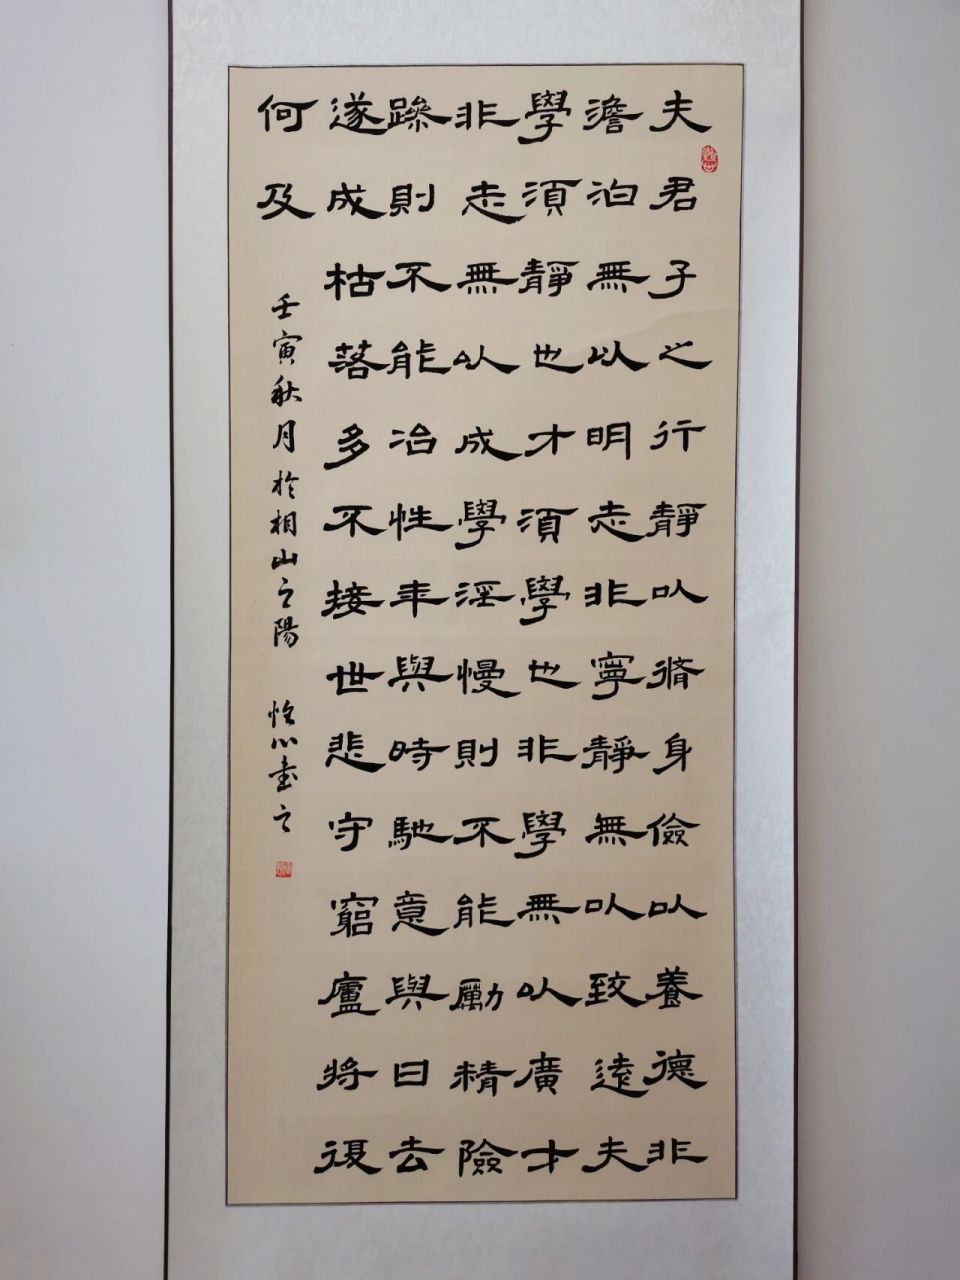 夫君子之行靜以脩身儉以養德非
澹泊無以明志非寧靜無以致遠夫
學須靜也才須學也非學無以廣才
非志無以成學淫慢則不能勵精險
躁則不能冶性年與時馳意與日去
遂成枯落多不接世悲守窮廬將復
何及
壬寅秋月於相山之陽 怡心書之